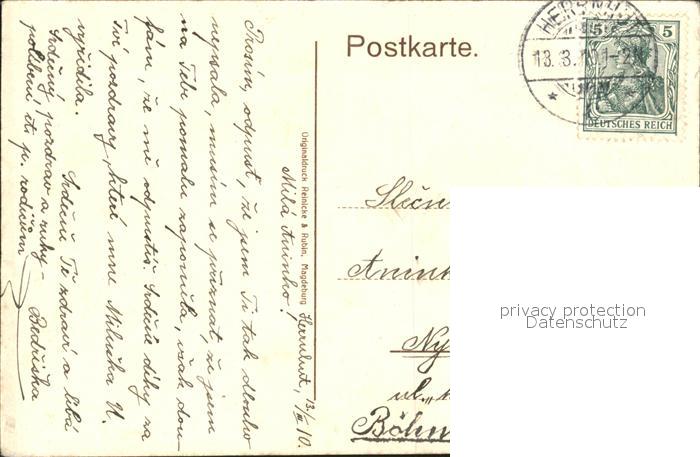 Postkarte.
HERRNHUT
13.3.10.1-2N
5 5
DEUTSCHES REICH
Originaldruck Reinicke & Rubin, Magdeburg
Herrnhut, 13/III 10.
Milá Aninko!
Prosím, odpusť, že jsem Ti tak dlouho
nepsala, musím se přiznat, že jsem
na Tebe pomalu zapoměla, však dou-
fám, že mi odpustíš. Srdečné díky za
Tvé pozdravy, které mne Miluška N.
vyřídila.
Srdečně Tě zdraví a líbá
Bedřiška
Srdečný pozdrav a ruky-
políbení ct. p. rodičům
Slečn
Anink
Ny
ul.
Böhm
privacy protection
Datenschutz